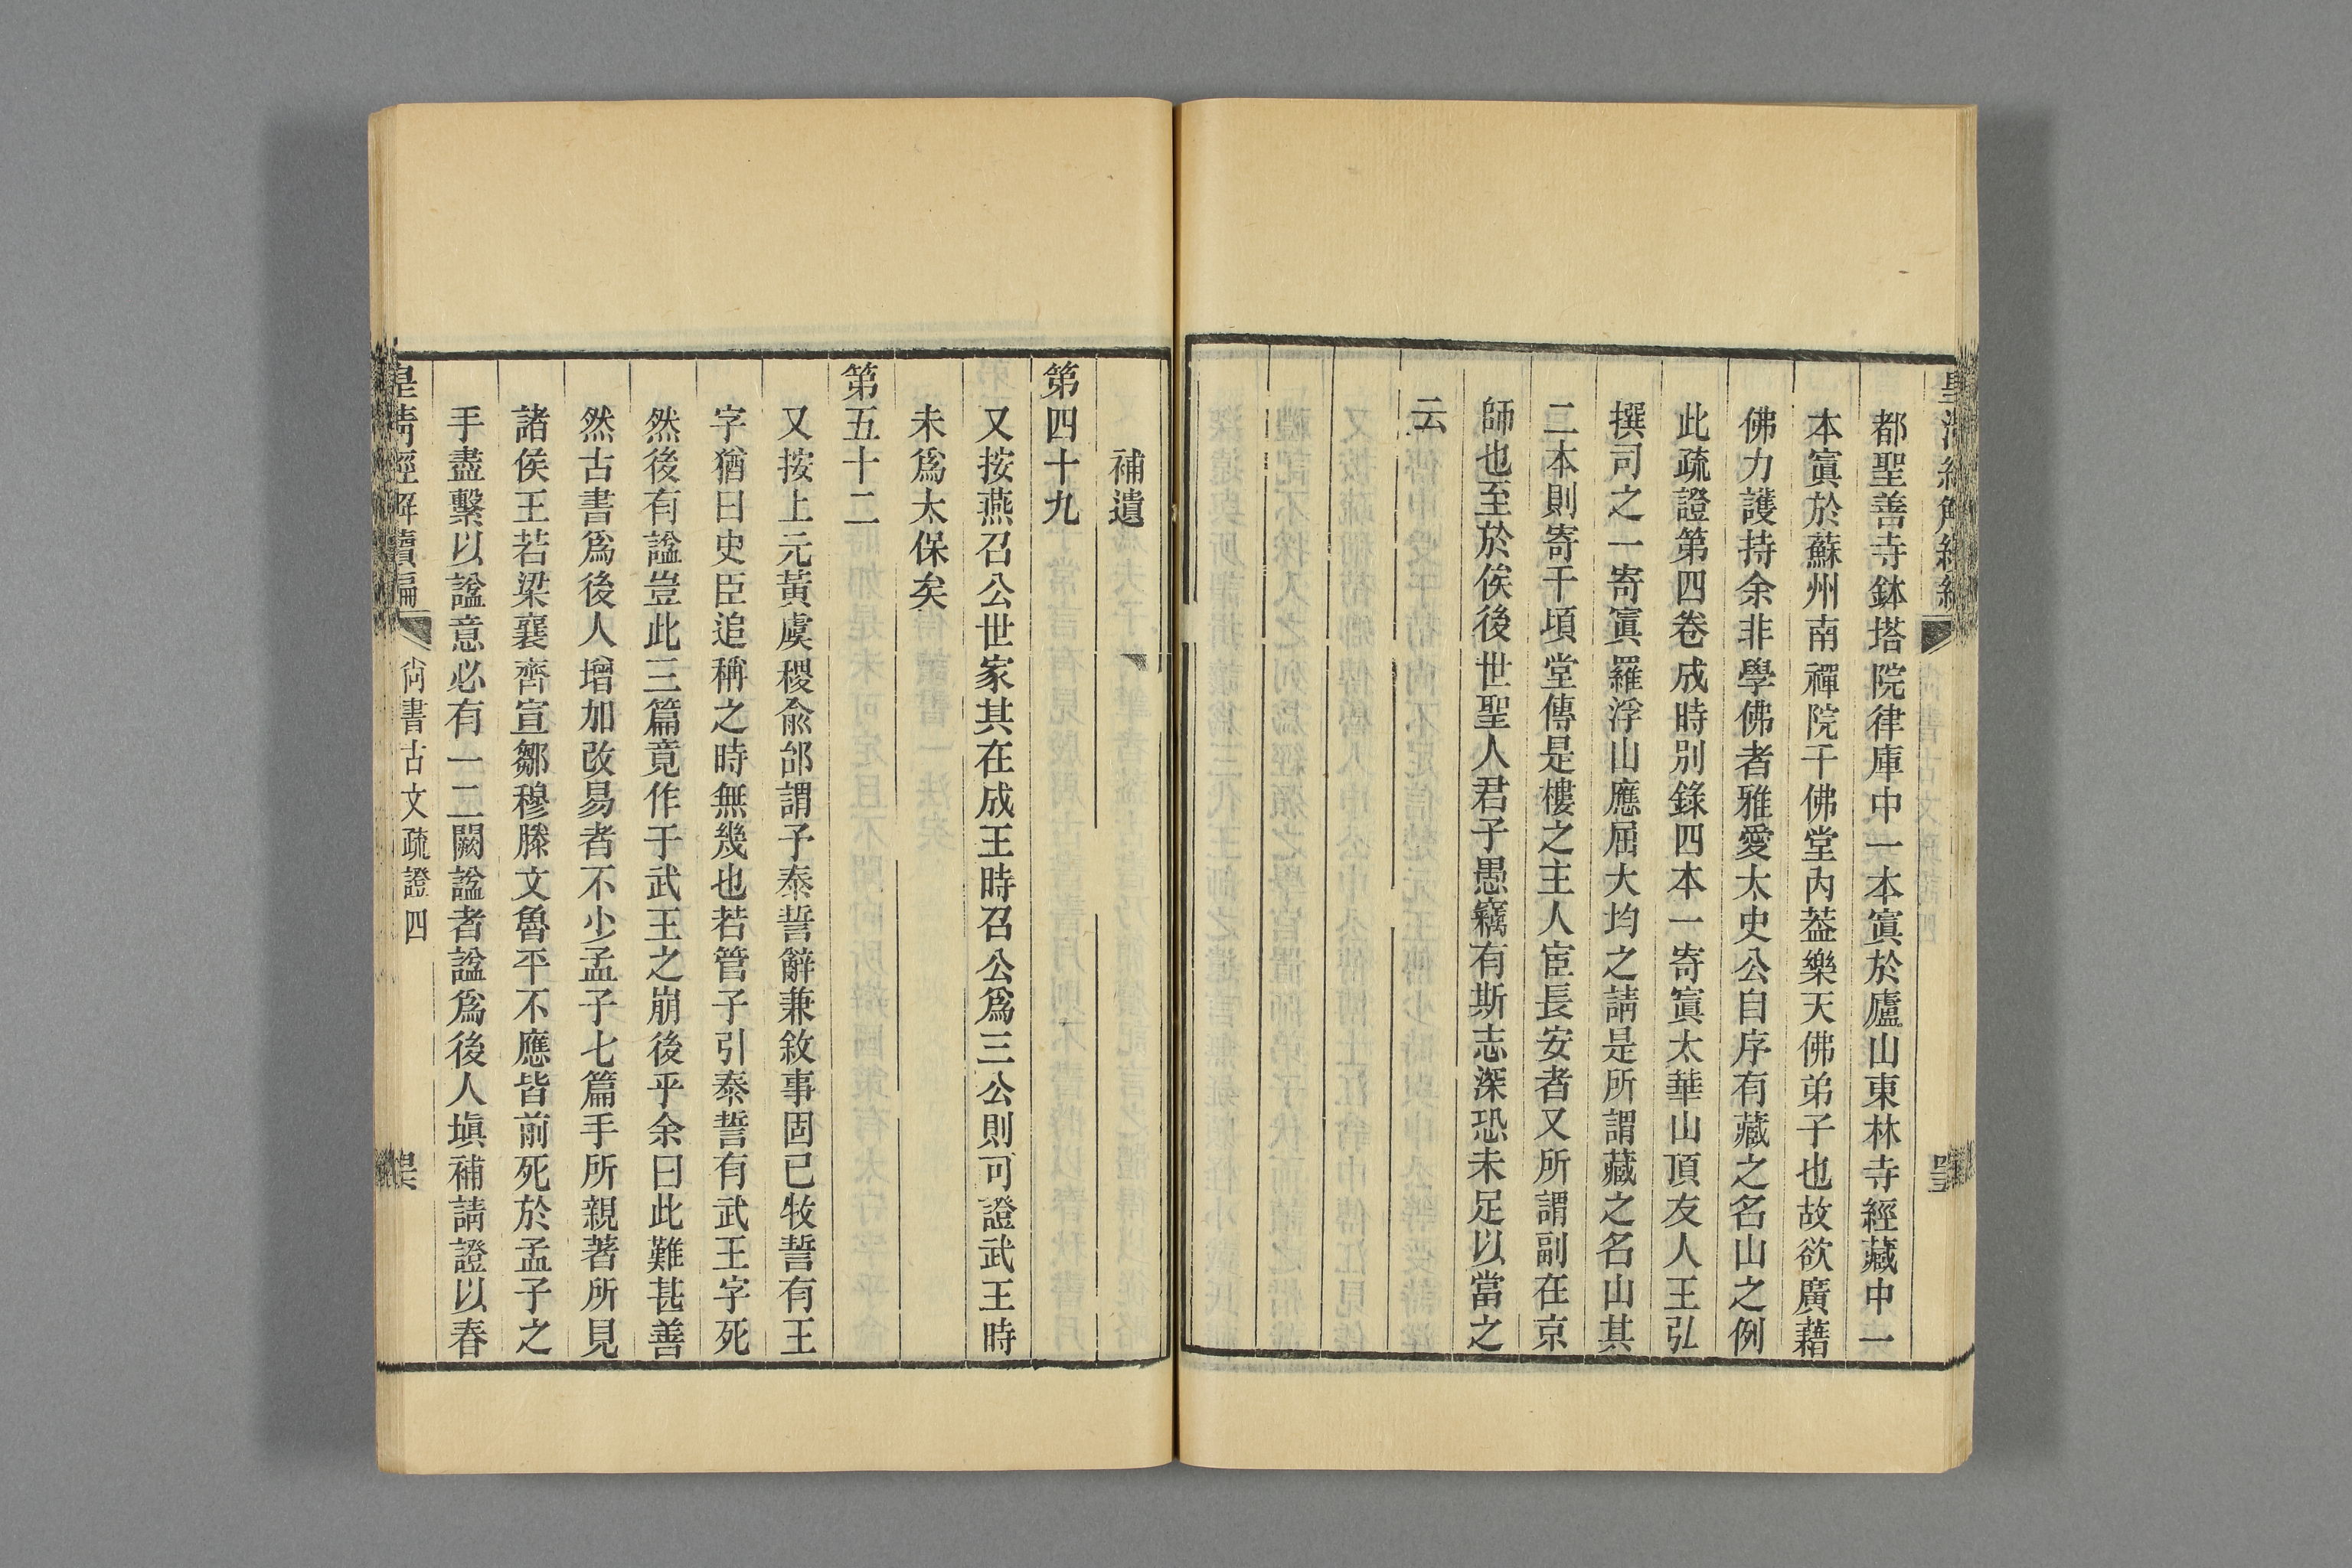 都聖善寺鉢塔院律庫中一本寘於廬山東林寺經藏中一
本寘於蘇州南禪院千佛堂內葢樂天佛弟子也故欲廣藉
佛力護持余非學佛者雅愛太史公自序有藏之名山之例
此疏證第四卷成時別錄四本一寄寘太華山頂友人王弘
撰司之一寄寘羅浮山應屈大均之請是所謂藏之名山其
二本則寄千頃堂傳是樓之主人宦長安者又所謂副在京
師也至於俟後世聖人君子愚竊有斯志深恐未足以當之
云
補遺
第四十九
又按燕召公世家其在成王時召公爲三公則可證武王時
未爲太保矣
第五十二
又按上元黃虞稷兪邰謂予泰誓辭兼敘事固已牧誓有王
字猶曰史臣追稱之時無幾也若管子引泰誓有武王字死
然後有諡豈此三篇竟作于武王之崩後乎余曰此難甚善
然古書爲後人增加改易者不少孟子七篇手所親著所見
諸侯王若梁襄齊宣鄒穆滕文魯平不應皆前死於孟子之
手盡繫以諡意必有一二闕諡者諡爲後人塡補請證以春
皇淸經解續編
尙書古文疏證四